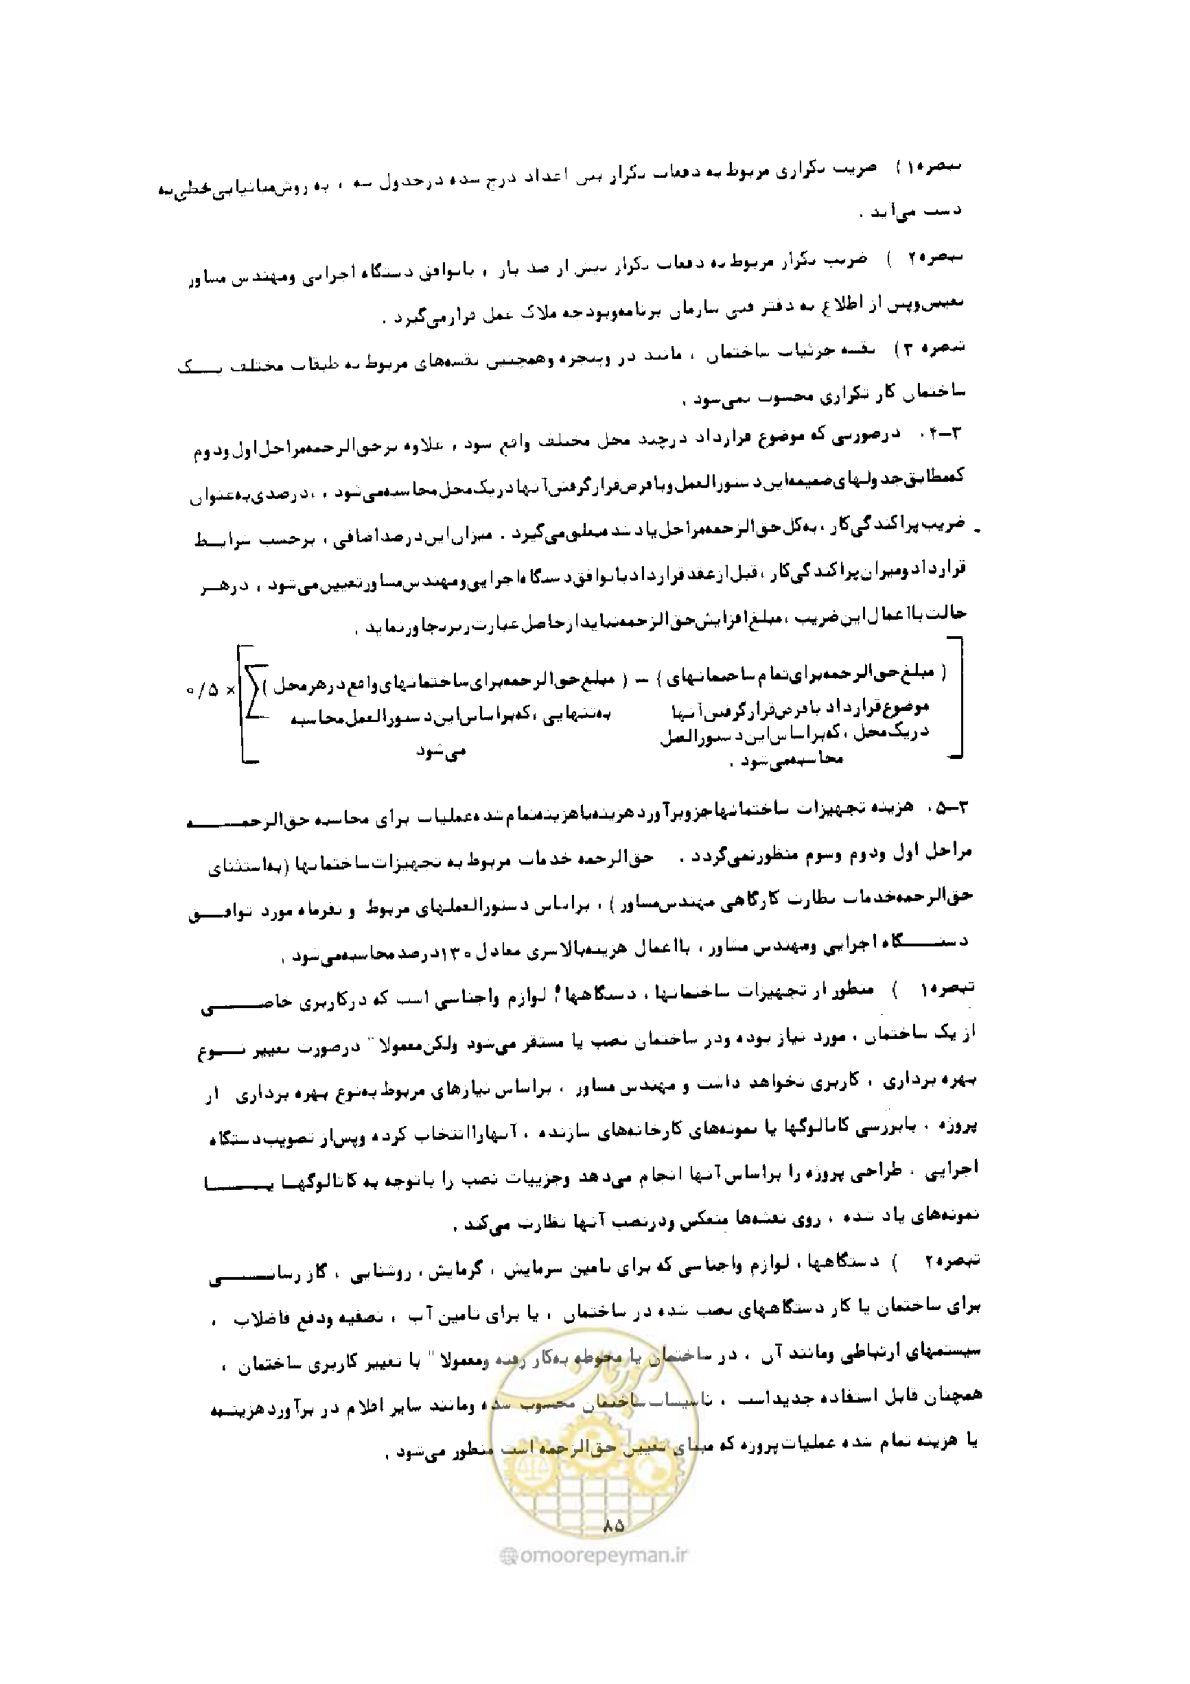 تبصره۱ ) ضریب تکراری مربوط به دفعات تکرار بین اعداد درج شده درجدول سه ، به روش میانیابی خطی به
دست می‌آید .
تبصره۲ ) ضریب تکرار مربوط به دفعات تکرار بیش از صد بار ، باتوافق دستگاه اجرایی ومهندس مشاور
تعیین‌وپس از اطلاع به دفتر فنی سازمان برنامه‌وبودجه ملاک عمل قرارمی‌گیرد .
تبصره ۳) نقشه جزئیات ساختمان ، مانند در وپنجره وهمچنین نقشه‌های مربوط به طبقات مختلف یک
ساختمان کار تکراری محسوب نمی‌شود .
۳-۴. درصورتی که موضوع قرارداد درچند محل مختلف واقع شود ، علاوه برحق‌الزحمه‌مراحل‌اول‌ودوم
که‌مطابق‌جدولهای‌ضمیمه‌این‌دستورالعمل‌وبافرض‌قرارگرفتن‌آنهادریک‌محل‌محاسبه‌می‌شود ، ،درصدی‌به‌عنوان
ضریب‌پراکندگی‌کار ،به‌کل‌حق‌الزحمه‌مراحل‌یادشده‌تعلق‌می‌گیرد . میزان‌این‌درصداضافی ، برحسب شرایط
قراردادومیزان‌پراکندگی‌کار ،قبل‌ازعقدقراردادباتوافق‌دستگاه‌اجرایی‌ومهندس‌مشاورتعیین‌می‌شود ، درهر
حالت‌بااعمال‌این‌ضریب ،مبلغ‌افزایش‌حق‌الزحمه‌نبایدازحاصل‌عبارت‌زیرتجاوزنماید .
[ ( مبلغ‌حق‌الزحمه‌برای‌تمام‌ساختمانهای ) – ( مبلغ‌حق‌الزحمه‌برای‌ساختمانهای‌واقع‌درهرمحل ) ∑ ] × ۰/۵
موضوع‌قرارداد بافرض‌قرارگرفتن‌آنها به‌تنهایی ،که‌براساس‌این‌دستورالعمل‌محاسبه
دریک‌محل ،که‌براساس‌این‌دستورالعمل می‌شود
محاسبه‌می‌شود .
۳-۵. هزینه تجهیزات ساختمانهاجزوبرآوردهزینه‌یاهزینه‌تمام‌شده‌عملیات برای محاسبه حق‌الزحمه
مراحل اول ودوم وسوم منظورنمی‌گردد . حق‌الزحمه خدمات مربوط به تجهیزات‌ساختمانها (به‌استثنای
حق‌الزحمه‌خدمات نظارت کارگاهی مهندس‌مشاور) ، براساس دستورالعملهای مربوط و نفرماه مورد توافق
دستگاه اجرایی ومهندس مشاور ، بااعمال هزینه‌بالاسری معادل ۱۳۰درصدمحاسبه‌می‌شود .
تبصره۱ ) منظور از تجهیزات ساختمانها ، دستگاهها، لوازم واجناسی است که درکاربری خاصی
از یک ساختمان ، مورد نیاز بوده ودر ساختمان نصب یا مستقر می‌شود ولکن‌معمولا" درصورت تغییر نوع
بهره برداری ، کاربری نخواهد داشت و مهندس مشاور ، براساس نیازهای مربوط به‌نوع بهره برداری از
پروژه ، بابررسی کاتالوگها یا نمونه‌های کارخانه‌های سازنده ، آنهاراانتخاب کرده وپس‌از تصویب‌دستگاه
اجرایی ، طراحی پروژه را براساس‌آنها انجام می‌دهد وجزییات نصب را باتوجه به کاتالوگها یا
نمونه‌های یاد شده ، روی نقشه‌ها منعکس ودرنصب آنها نظارت می‌کند .
تبصره۲ ) دستگاهها ، لوازم واجناسی که برای تامین سرمایش ، گرمایش ، روشنایی ، گاز رسانی
برای ساختمان یا کار دستگاههای نصب شده در ساختمان ، یا برای تامین آب ، تصفیه ودفع فاضلاب ،
سیستمهای ارتباطی ومانند آن ، در ساختمان یا محوطه به‌کار رفته ومعمولا" با تغییر کاربری ساختمان ،
همچنان قابل استفاده جدیداست ، تاسیسات‌ساختمان محسوب شده ومانند سایر اقلام در برآوردهزینه
یا هزینه تمام شده عملیات‌پروژه که مبنای تعیین حق‌الزحمه است منظور می‌شود .
۸۵
@omoorepeyman.ir